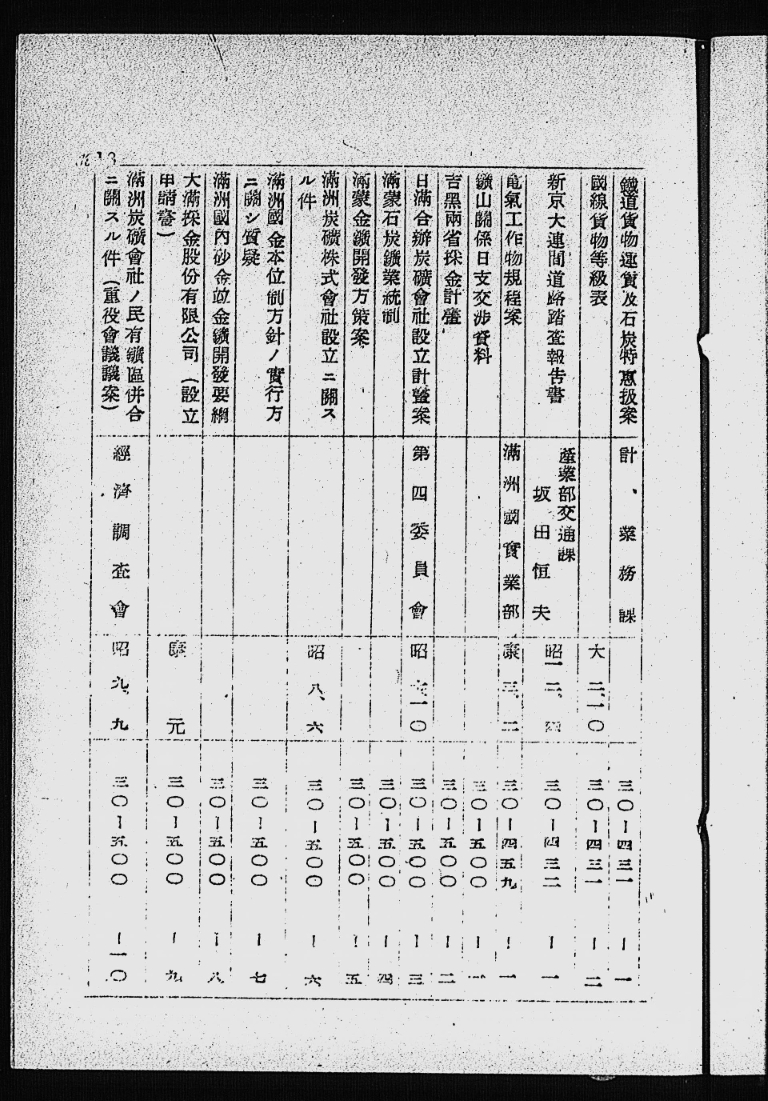 鐵道貨物運賃及石炭特惠扱案 計、業務課 三〇ー四三一 ー一
國線貨物等級表 大二、一〇 三〇ー四三一 ー二
新京大連間道路踏査報告書 產業部交通課
坂田恒夫 昭一二、 三〇ー四三二 ー一
電氣工作物規程案 滿洲國實業部 康三、二 三〇ー四五九 ー一
鑛山關係日支交涉資料 三〇ー五〇〇 ー一
吉黑兩省採金計畫 三〇ー五〇〇 ー二
日滿合辦炭礦會社設立計畫案 第四委員會 昭 一〇 三〇ー五〇〇 ー三
滿蒙石炭鑛業統制 三〇ー五〇〇 ー四
滿蒙金鑛開發方策案 三〇ー五〇〇 ー五
滿洲炭礦株式會社設立ニ關ス
ル件 昭八、六 三〇ー五〇〇 ー六
滿洲國金本位制方針ノ實行方
ニ關シ質疑 三〇ー五〇〇 ー七
滿洲國內砂金竝金鑛開發要綱 三〇ー五〇〇 ー八
大滿採金股份有限公司(設立
申請書) 康元 三〇ー五〇〇 ー九
滿洲炭礦會社ノ民有鑛區併合
ニ關スル件(重役會議議案) 經濟調查會 昭九、九 三〇ー五〇〇 ー一〇